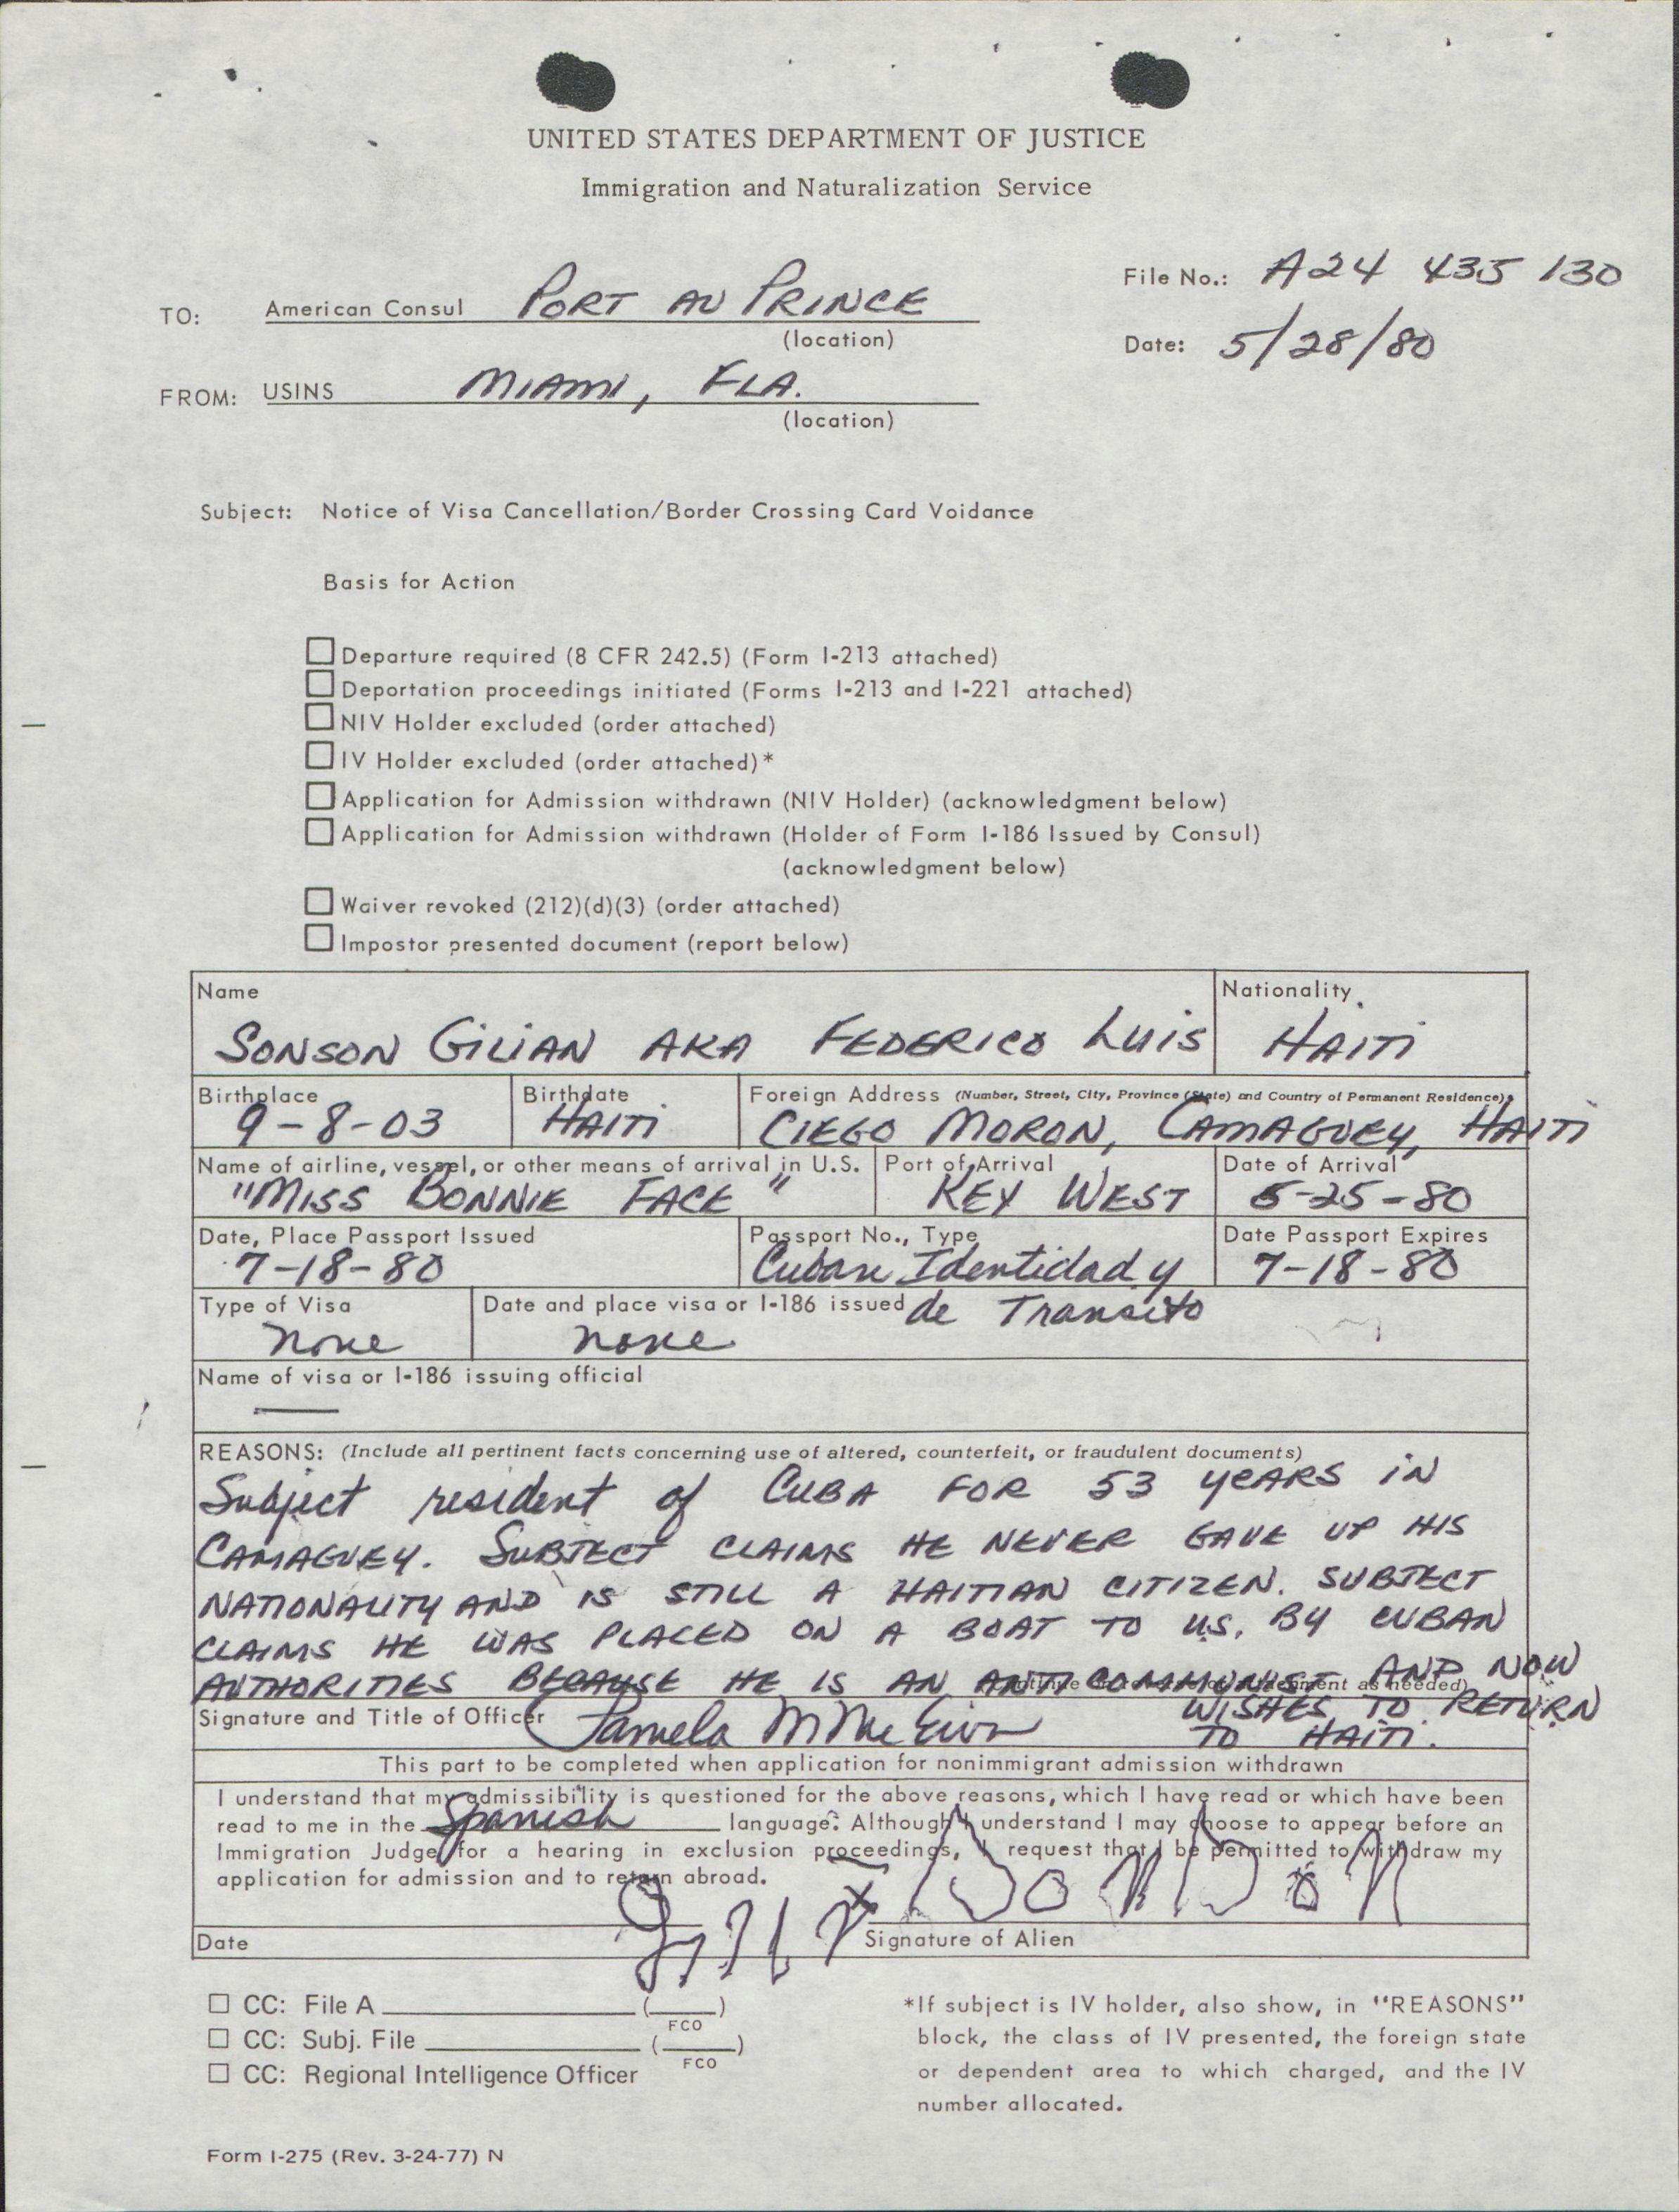 UNITED STATES DEPARTMENT OF JUSTICE
Immigration and Naturalization Service
File No.: A24 435 130
TO: American Consul PORT AU PRINCE
(location)
Date: 5/28/80
FROM: USINS MIAMI, FLA.
(location)
Subject: Notice of Visa Cancellation/Border Crossing Card Voidance
Basis for Action
Departure required (8 CFR 242.5) (Form I-213 attached)
Deportation proceedings initiated (Forms I-213 and I-221 attached)
NIV Holder excluded (order attached)
IV Holder excluded (order attached)*
Application for Admission withdrawn (NIV Holder) (acknowledgment below)
Application for Admission withdrawn (Holder of Form I-186 Issued by Consul)
(acknowledgment below)
Waiver revoked (212)(d)(3) (order attached)
Impostor presented document (report below)
Name Nationality
SONSON GILIAN AKA FEDERICO LUIS HAITI
Birthplace Birthdate Foreign Address (Number, Street, City, Province (State) and Country of Permanent Residence)
9-8-03 HAITI CIEGO MORON, CAMAGUEY, HAITI
Name of airline, vessel, or other means of arrival in U.S. Port of Arrival Date of Arrival
"MISS BONNIE FACE" KEY WEST 5-25-80
Date, Place Passport Issued Passport No., Type Date Passport Expires
7-18-80 Cuban Identidad y 7-18-80
Type of Visa Date and place visa or I-186 issued de Transito
none none
Name of visa or I-186 issuing official
REASONS: (Include all pertinent facts concerning use of altered, counterfeit, or fraudulent documents)
Subject resident of CUBA FOR 53 YEARS IN
CAMAGUEY. SUBJECT CLAIMS HE NEVER GAVE UP HIS
NATIONALITY AND IS STILL A HAITIAN CITIZEN. SUBJECT
CLAIMS HE WAS PLACED ON A BOAT TO U.S. BY CUBAN
AUTHORITIES BECAUSE HE IS AN ANTI COMMUNIST AND NOW
as needed)
WISHES TO RETURN
Signature and Title of Officer Pamela M
TO HAITI.
This part to be completed when application for nonimmigrant admission withdrawn
I understand that my admissibility is questioned for the above reasons, which I have read or which have been
read to me in the Spanish language. Although I understand I may choose to appear before an
Immigration Judge for a hearing in exclusion proceedings, I request that I be permitted to withdraw my
application for admission and to return abroad.
Date Signature of Alien
CC: File A ( )
FCO
CC: Subj. File ( )
FCO
CC: Regional Intelligence Officer
*If subject is IV holder, also show, in "REASONS"
block, the class of IV presented, the foreign state
or dependent area to which charged, and the IV
number allocated.
Form I-275 (Rev. 3-24-77) N